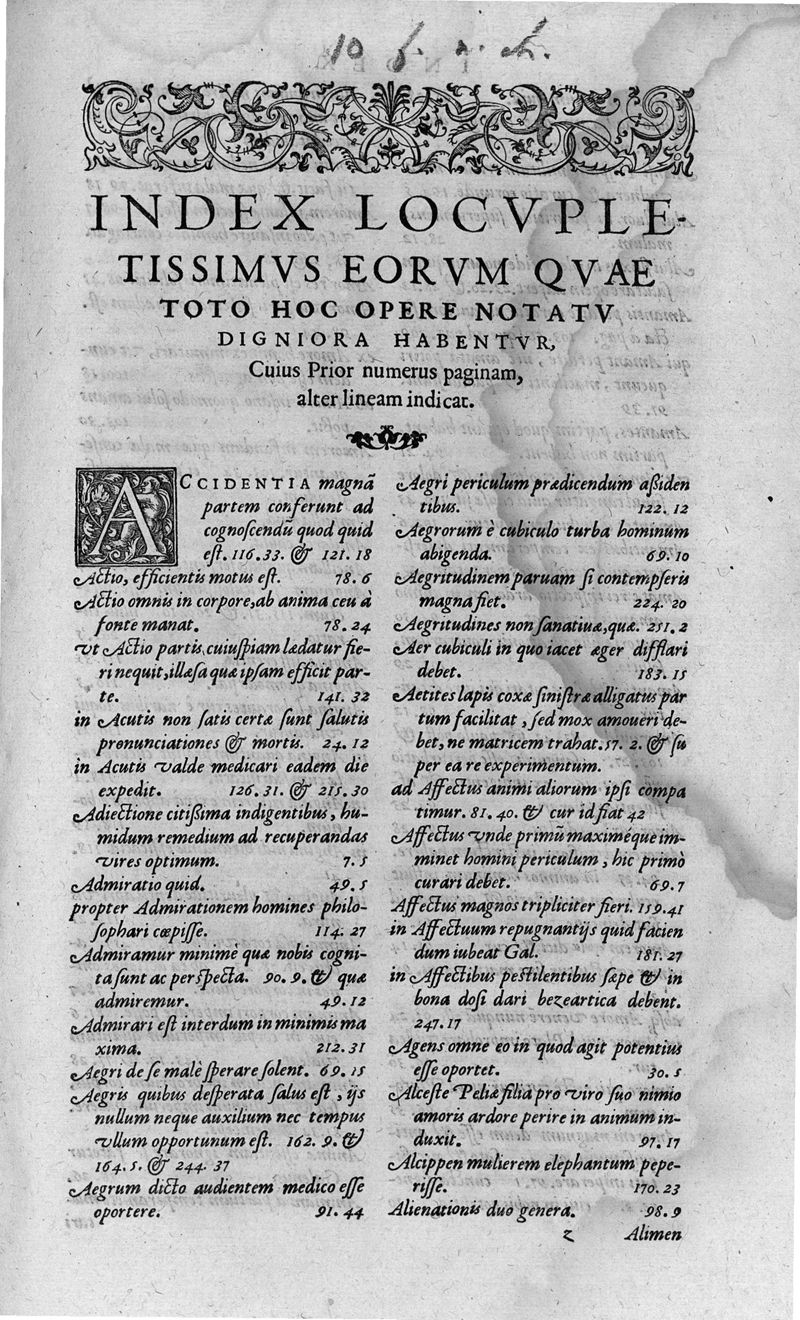 10 f. a. ch.
INDEX LOCVPLE-
TISSIMVS EORVM QVAE
TOTO HOC OPERE NOTATV
DIGNIORA HABENTVR,
Cuius Prior numerus paginam,
alter lineam indicat.
ACCIDENTIA magnā
partem conferunt ad
cognoſcendū quod quid
eſt. 116.33. & 121.18
Actio, efficientis motus eſt. 78.6
Actio omnis in corpore, ab anima ceu à
fonte manat. 78.24
vt Actio partis cuiuſpiam lædatur fie-
ri nequit, illæſa quæ ipſam efficit par-
te. 141.32
in Acutis non ſatis certæ ſunt ſalutis
pronunciationes & mortis. 24.12
in Acutis valde medicari eadem die
expedit. 126.31. & 215.30
Adiectione citißima indigentibus, hu-
midum remedium ad recuperandas
vires optimum. 7.5
Admiratio quid. 49.5
propter Admirationem homines philo-
ſophari cœpiſſe. 114.27
Admiramur minimè quæ nobis cogni-
ta ſunt ac perſpecta. 90.9. & quæ
admiremur. 49.12
Admirari eſt interdum in minimis ma
xima. 212.31
Aegri de ſe malè ſperare ſolent. 69.15
Aegris quibus deſperata ſalus eſt, ijs
nullum neque auxilium nec tempus
vllum opportunum eſt. 162.9. &
164.5. & 244.37
Aegrum dicto audientem medico eſſe
oportere. 91.44
Aegri periculum prædicendum aßiden
tibus. 122.12
Aegrorum è cubiculo turba hominum
abigenda. 69.10
Aegritudinem paruam ſi contempſeris
magna fiet. 224.20
Aegritudines non ſanatiuæ, quæ. 251.2
Aer cubiculi in quo iacet æger difflari
debet. 183.15
Aetites lapis coxæ ſiniſtræ alligatus par
tum facilitat, ſed mox amoueri de-
bet, ne matricem trahat. 57.2. & ſu
per ea re experimentum.
ad Affectus animi aliorum ipſi compa
timur. 81.40. & cur id fiat 42
Affectus vnde primū maximéque im-
minet homini periculum, hic primò
curari debet. 69.7
Affectus magnos tripliciter fieri. 159.41
in Affectuum repugnantijs quid facien
dum iubeat Gal. 181.27
in Affectibus peſtilentibus ſæpe & in
bona doſi dari bezeartica debent.
247.17
Agens omne eo in quod agit potentius
eſſe oportet. 30.5
Alceſte Peliæ filia pro viro ſuo nimio
amoris ardore perire in animum in-
duxit. 97.17
Alcippen mulierem elephantum pepe-
riſſe. 170.23
Alienationis duo genera. 98.9
z Alimen